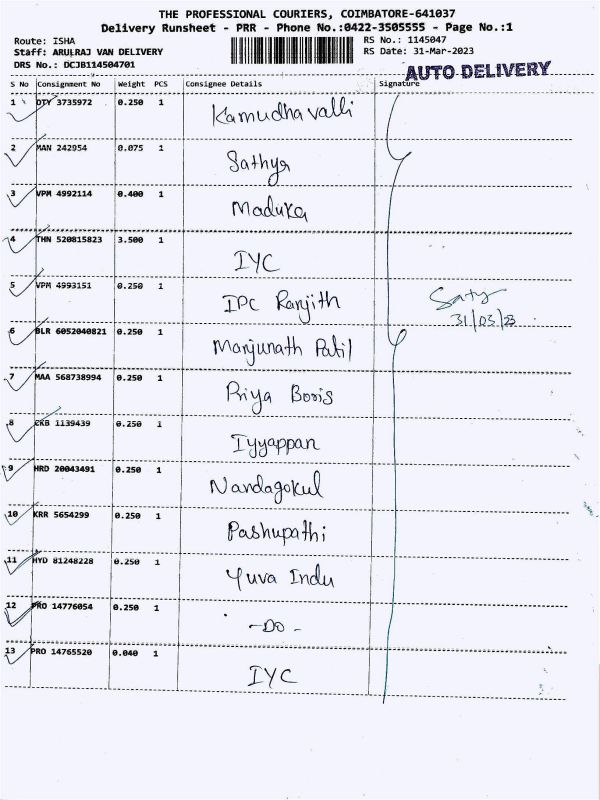 THE PROFESSIONAL COURIERS, COIMBATORE-641037
Delivery Runsheet - PRR - Phone No.:0422-3505555 - Page No.:1
Route: ISHA
RS No.: 1145047
Staff: ARULRAJ VAN DELIVERY
RS Date: 31-Mar-2023
DRS No.: DCJB114504701
AUTO DELIVERY
S No Consignment No Weight PCS Consignee Details Signature
1 DTY 3735972 0.250 1 Kamudhavalli
2 MAN 242954 0.075 1 Sathya
3 VPM 4992114 0.400 1 Maduka
4 THN 520815823 3.500 1 IYC
5 VPM 4993151 0.250 1 IPC Ranjith
Saty
31/03/23
6 BLR 6052040821 0.250 1 Manjunath Patil
7 MAA 568738994 0.250 1 Priya Boris
8 CKB 1139439 0.250 1 Iyyappan
9 HRD 20043491 0.250 1 Nandagokul
10 KRR 5654299 0.250 1 Pashupathi
11 HYD 81248228 0.250 1 Yuva Indu
12 PRO 14776054 0.250 1 -DO-
13 PRO 14765520 0.040 1 IYC